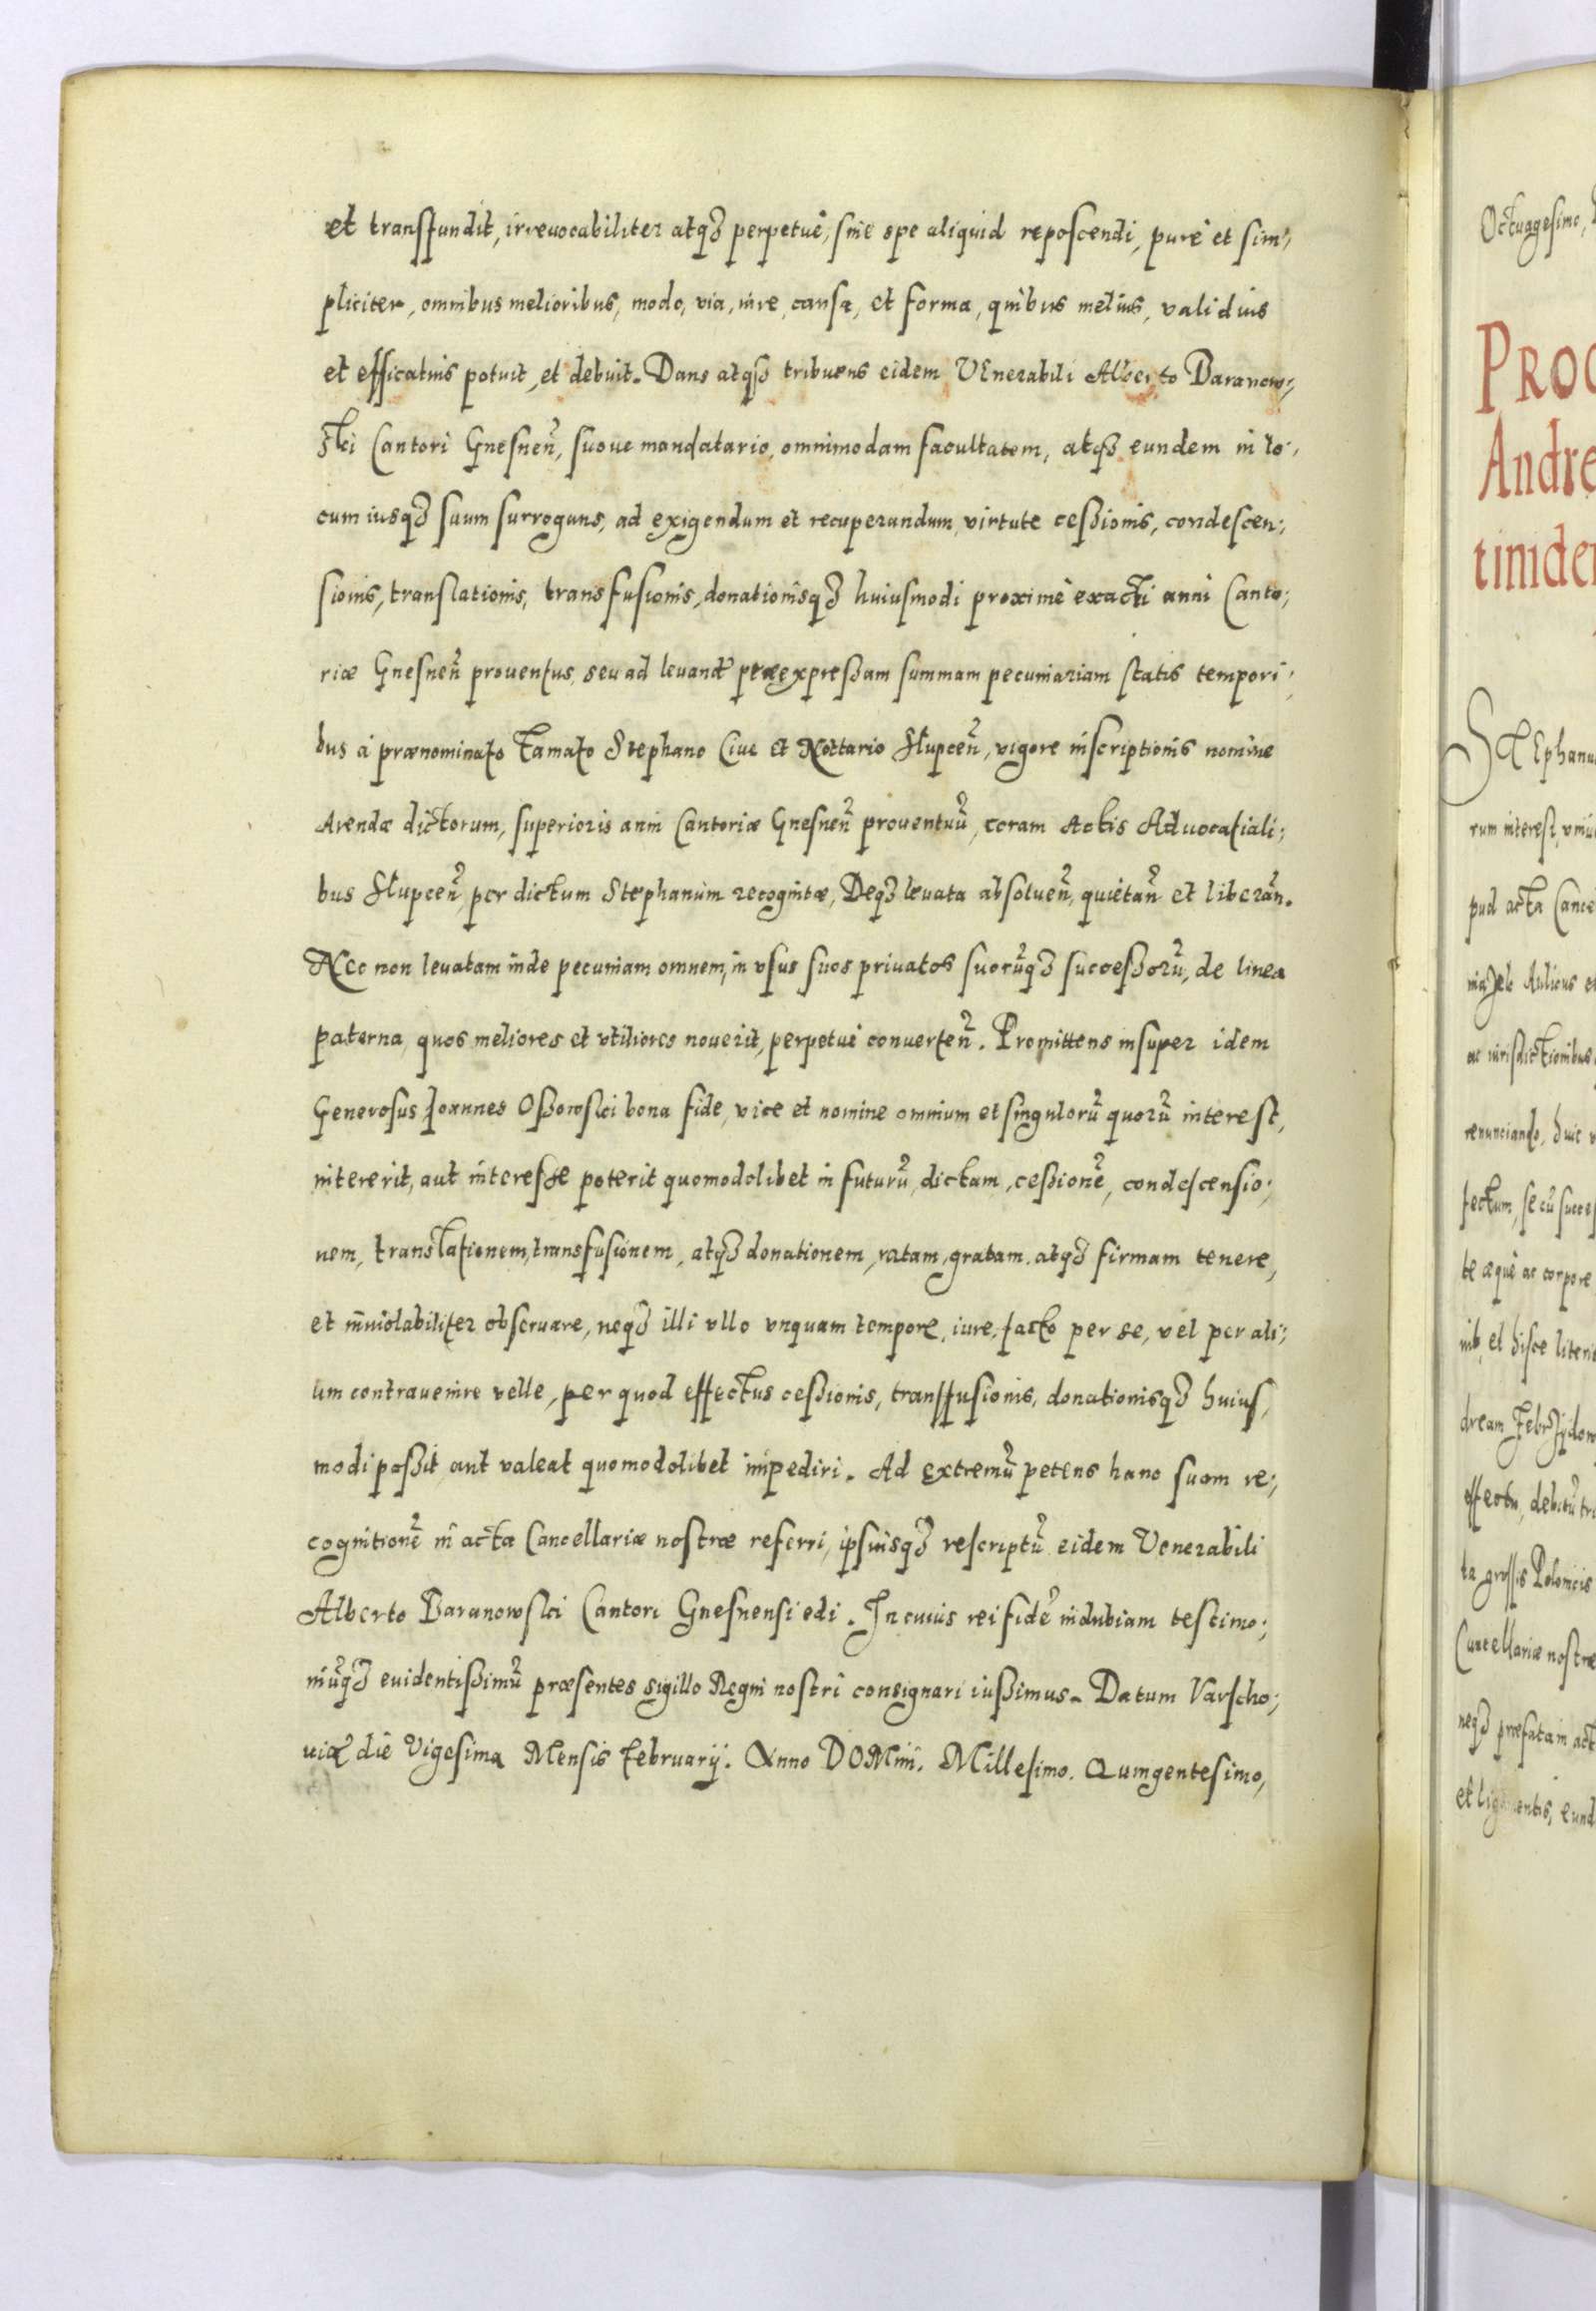 et transfundit, irrevocabiliter atq3 perpetuè, sine spe aliquid reposcendi, purè et sim;
pliciter, omnibus melioribus, modo, via, iure, causa, et forma, quibus melius, validius
et efficatius potuit, et debuit. Dans atq3 tribuens eidem VEnerabili Alberto Baranow;
ski Cantori Gnesneñ, suoue mandatario, omnimodam facultatem, atq3 eundem in lo;
cum iusq3 suum surrogans, ad exigendum et recuperandum, virtute ceßionis, condescen;
sionis, translationis, transfusionis, donationisq3 huiusmodi proximè exacti anni Canto;
riæ Gnesneñ prouentus, seu ad leuand præexpreßam summam pecuniariam statis tempori;
bus à prænominato famato Stephano Ciue et Nottario Slupceñ, vigore inscriptionis nomine
Arendæ dictorum, superioris anni Cantoriæ Gnesneñ prouentuũ, coram Actis Aduocatiali;
bus Slupceñ, per dictum Stephanum recognitæ, Deq3 leuata absolueñ, quietañ et liberañ.
NEc non leuatam inde pecuniam omnem, in vsus suos priuatos suorũq3 succeßorũ, de linea
paterna, quos meliores et vtiliores nouerit, perpetuè conuerteñ. Promittens insuper idem
Generosus Joannes Oßowski bona fide, vice et nomine omnium et singulorũ quorũ interest,
intererit, aut interesse poterit quomodolibet in futurũ, dictam, ceßionẽ, condescensio;
nem, translationem, transfusionem, atq3 donationem, ratam, gratam, atq3 firmam tenere,
et inuiolabiliter obseruare, neq3 illi vllo vnquam tempore, iure, facto per se, vel per ali;
um contrauenire velle, per quod effectus ceßionis, transfusionis, donationisq3 huius,
modi poßit aut valeat quomodolibet impediri. Ad extremũ petens hanc suam re;
cognitionẽ in acta Cancellariæ nostræ referri, ipsiusq3 rescriptũ eidem Venerabili
Alberto Baranowski Cantori Gnesnensi edi. In cuius rei fidẽ indubiam testimo;
niũq3 euidentißimũ præsentes sigillo Regni nostri consignari iußimus. Datum Varscho;
uiæ die Vigesima Mensis februarij. Anno DOMini. Millesimo. Quingentesimo,
Octuagesimo,
PROC
Andre
STEphanu
rum interest, vniu
pud acta Cance
ac iurisdictionibus
renunciando, huic
fectum, se cũ succes
te æquè ac corpore
et hisce literis
dream
effectu, debitũ tri
ta grossis Polonicis
Cancellariæ nostræ
neq3 præfatam act
eund